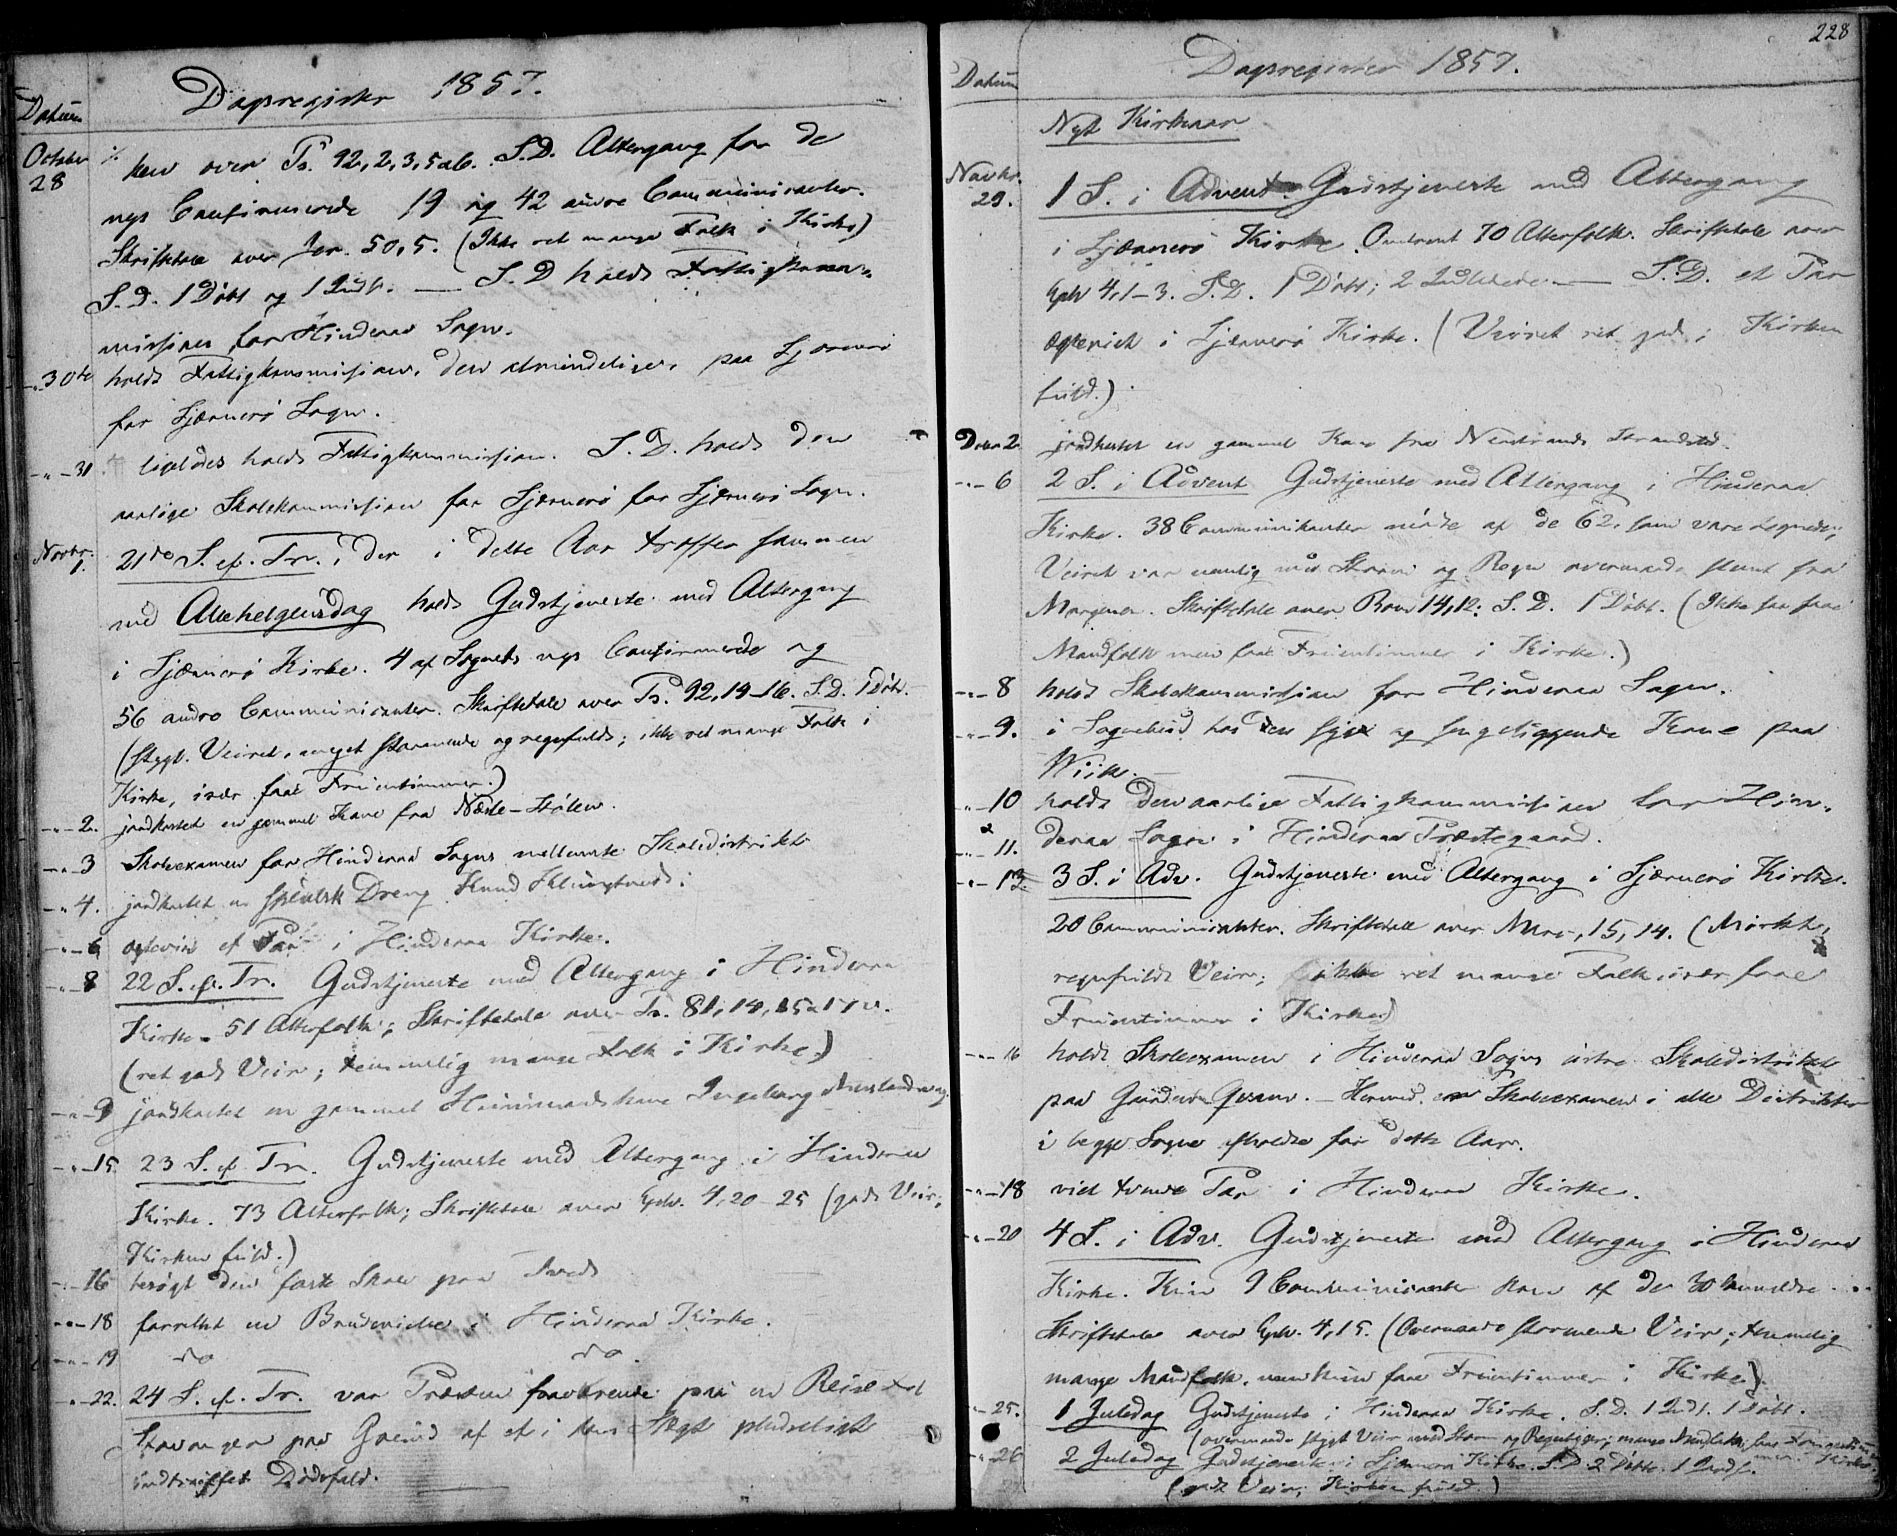 Dagsregister 1857.
Datum
October 28 ken over Ps. 92,2,3,5 a 6. S.D. Altergang for de
nys Confirmerede 19 og 42 andre Communicanter.
Skriftetale over Jer. 50,5. (Ikke ret mange Folk i Kirke)
S.D. 1 Døbt og 1 Indl. — S.D. holdt Fattigkom-
mission for Hinderaa Sogn.
-"- 30te holdt Fattigkommission, den almindelige, paa Sjærnerø
for Sjærnerø Sogn.
-"- 31 ligeledes holdt Fattigkommission. S.D. holdt den
aarlige Skolekommission for Sjærnerø for Sjærnerø Sogn.
Novbr. 1. 21de S. ef. Tr., der i dette Aar træffer sammen
med Allehelgensdag holdt Gudstjeneste med Altergang
i Sjærnerø Kirke. 4 af Sognets nys Confirmerede og
56 andre Communicanter. Skriftetale over Ps. 92,14-16. S.D. 1 Døbt.
(stygt Veiret, meget stormende og regnfuldt; ikke ret mange Folk i
Kirke, især faae Fruentimmer.)
-"- 2. jordkastet en gammel Kone fra Næste-Hølen.
-"- 3 Skoleexamen for Hinderaa Sogns mellemste Skoledistrikt
-"- 4. jordkastet en spedalsk Dreng Knud
-"- 6 ægteviet et Par i Hinderaa Kirke.
-"- 8 22 S. ef. Tr. Gudstjeneste med Altergang i Hinderaa
Kirke. 51 Alterfolk; Skriftetale over Ps. 81,14,15 a 17 v.
(ret godt Veir; temmelig mange Folk i Kirke.)
-"- 9 jordkastet en gammel Huusmandskone Ingeborg
-"- 15. 23 S. ef. Tr. Gudstjeneste med Altergang i Hinderaa
Kirke. 73 Alterfolk; Skriftetale over Eph. 4,20-25 (godt Veir;
Kirken fuld.)
-"- 16 besøgt den faste Skole paa Tveit
-"- 18 forrettet en Brudevielse i Hinderaa Kirke.
-"- 19 do do.
-"- 22. 24 S. ef. Tr. var Præsten fraværende paa en Reise til
Stavanger paa Grund af et i hans Slægt pludseligt
indtruffet Dødsfald.
228
Dagsregister 1857.
Datum
Nyt Kirkeaar
Novbr. 29. 1 S. i Advent. Gudstjeneste med Altergang
i Sjærnerø Kirke. Omtrent 70 Alterfolk. Skriftetale over
Eph 4,1-3. S.D. 1 Døbt; 2 Indledede — S.D. et Par
ægteviet i Sjærnerø Kirke. (Veiret ret godt; Kirken
fuld.)
Decbr 2. jordkastet en gammel Kone fra
-"- 6 2 S. i Advent Gudstjeneste med Altergang i Hinderaa
Kirke. 38 Communikanter mødte af de 62, som vare tegnede;
Veiret var nemlig med Storm og Regn overmaade slemt fra
Morgenen. Skriftetale over Rom 14,12. S.D. 1 Døbt. (Ikke saa faae
Mandfolk men faae Fruentimmer i Kirke.)
-"- 8 holdt Skolekommission for Hinderaa Sogn.
-"- 9. i Sognebud hos den syge og sengeliggende Kone paa
Wiik.
-"- 10 holdt den aarlige Fattigkommission for Hin-
& -"- 11. deraa Sogn i Hinderaa Præstegaard.
-"- 13. 3 S. i Adv. Gudstjeneste med Altergang i Sjærnerø Kirke.
20 Communicanter. Skriftetale over Marc. 15,14. (Mørkt,
regnfuldt Veir; ikke ret mange Folk, især faae
Fruentimmer i Kirke)
-"- 16 holdt Skoleexamen i Hinderaa Sogns østre Skoledistrikt
paa Gaarden. — Hermed er Skoleexamen i alle Distrikter
i begge Sogne afholdte for dette Aar.
-"- 18 viet tvende Par i Hinderaa Kirke.
-"- 20 4 S. i Adv. Gudstjeneste med Altergang i Hinderaa
Kirke. Kun 9 Communicanter kom af de 30 anmeldte.
Skriftetale over Eph. 4,15. (Overmaade stormende Veir; temmelig
mange Mandfolk, men kun faae Fruentimmer i Kirke.)
-"- 25. 1 Juledag Gudstjeneste i Hinderaa Kirke. S.D. 1 Indl. 1 Døbt.
(overmaade stygt Veir med Storm og Regnbyger; mange Mandfolk; faae Fruentimmer i Kirke.
-"- 26 2 Juledag Gudstjeneste i Sjærnerø Kirke. S.D. 2 Døbte. 1 Indl.
(godt Veir; Kirken fuld.)